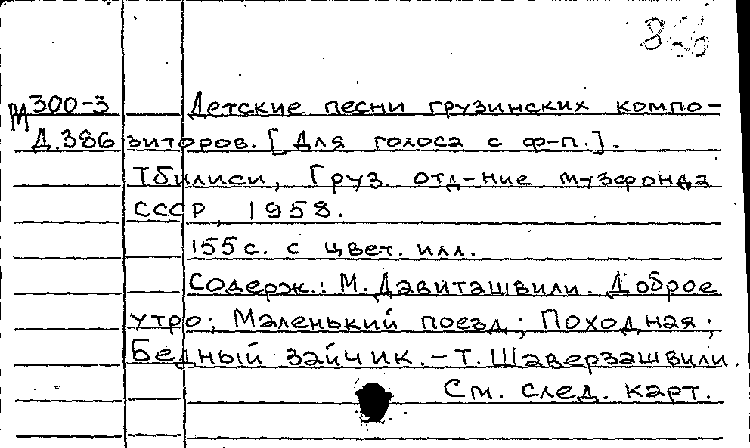 М 300-3 Детские песни грузинских компо-
Д.386 зиторов. [Для голоса с ф-п.].
Тбилиси, Груз. отд-ние музфонда
СССР, 1958.
155 с. с цвет. илл.
Содерж.: М. Давиташвили. Доброе
утро; Маленький поезд; Походная;
Бедный зайчик. – Т. Шаверзашвили.
См. след. карт.